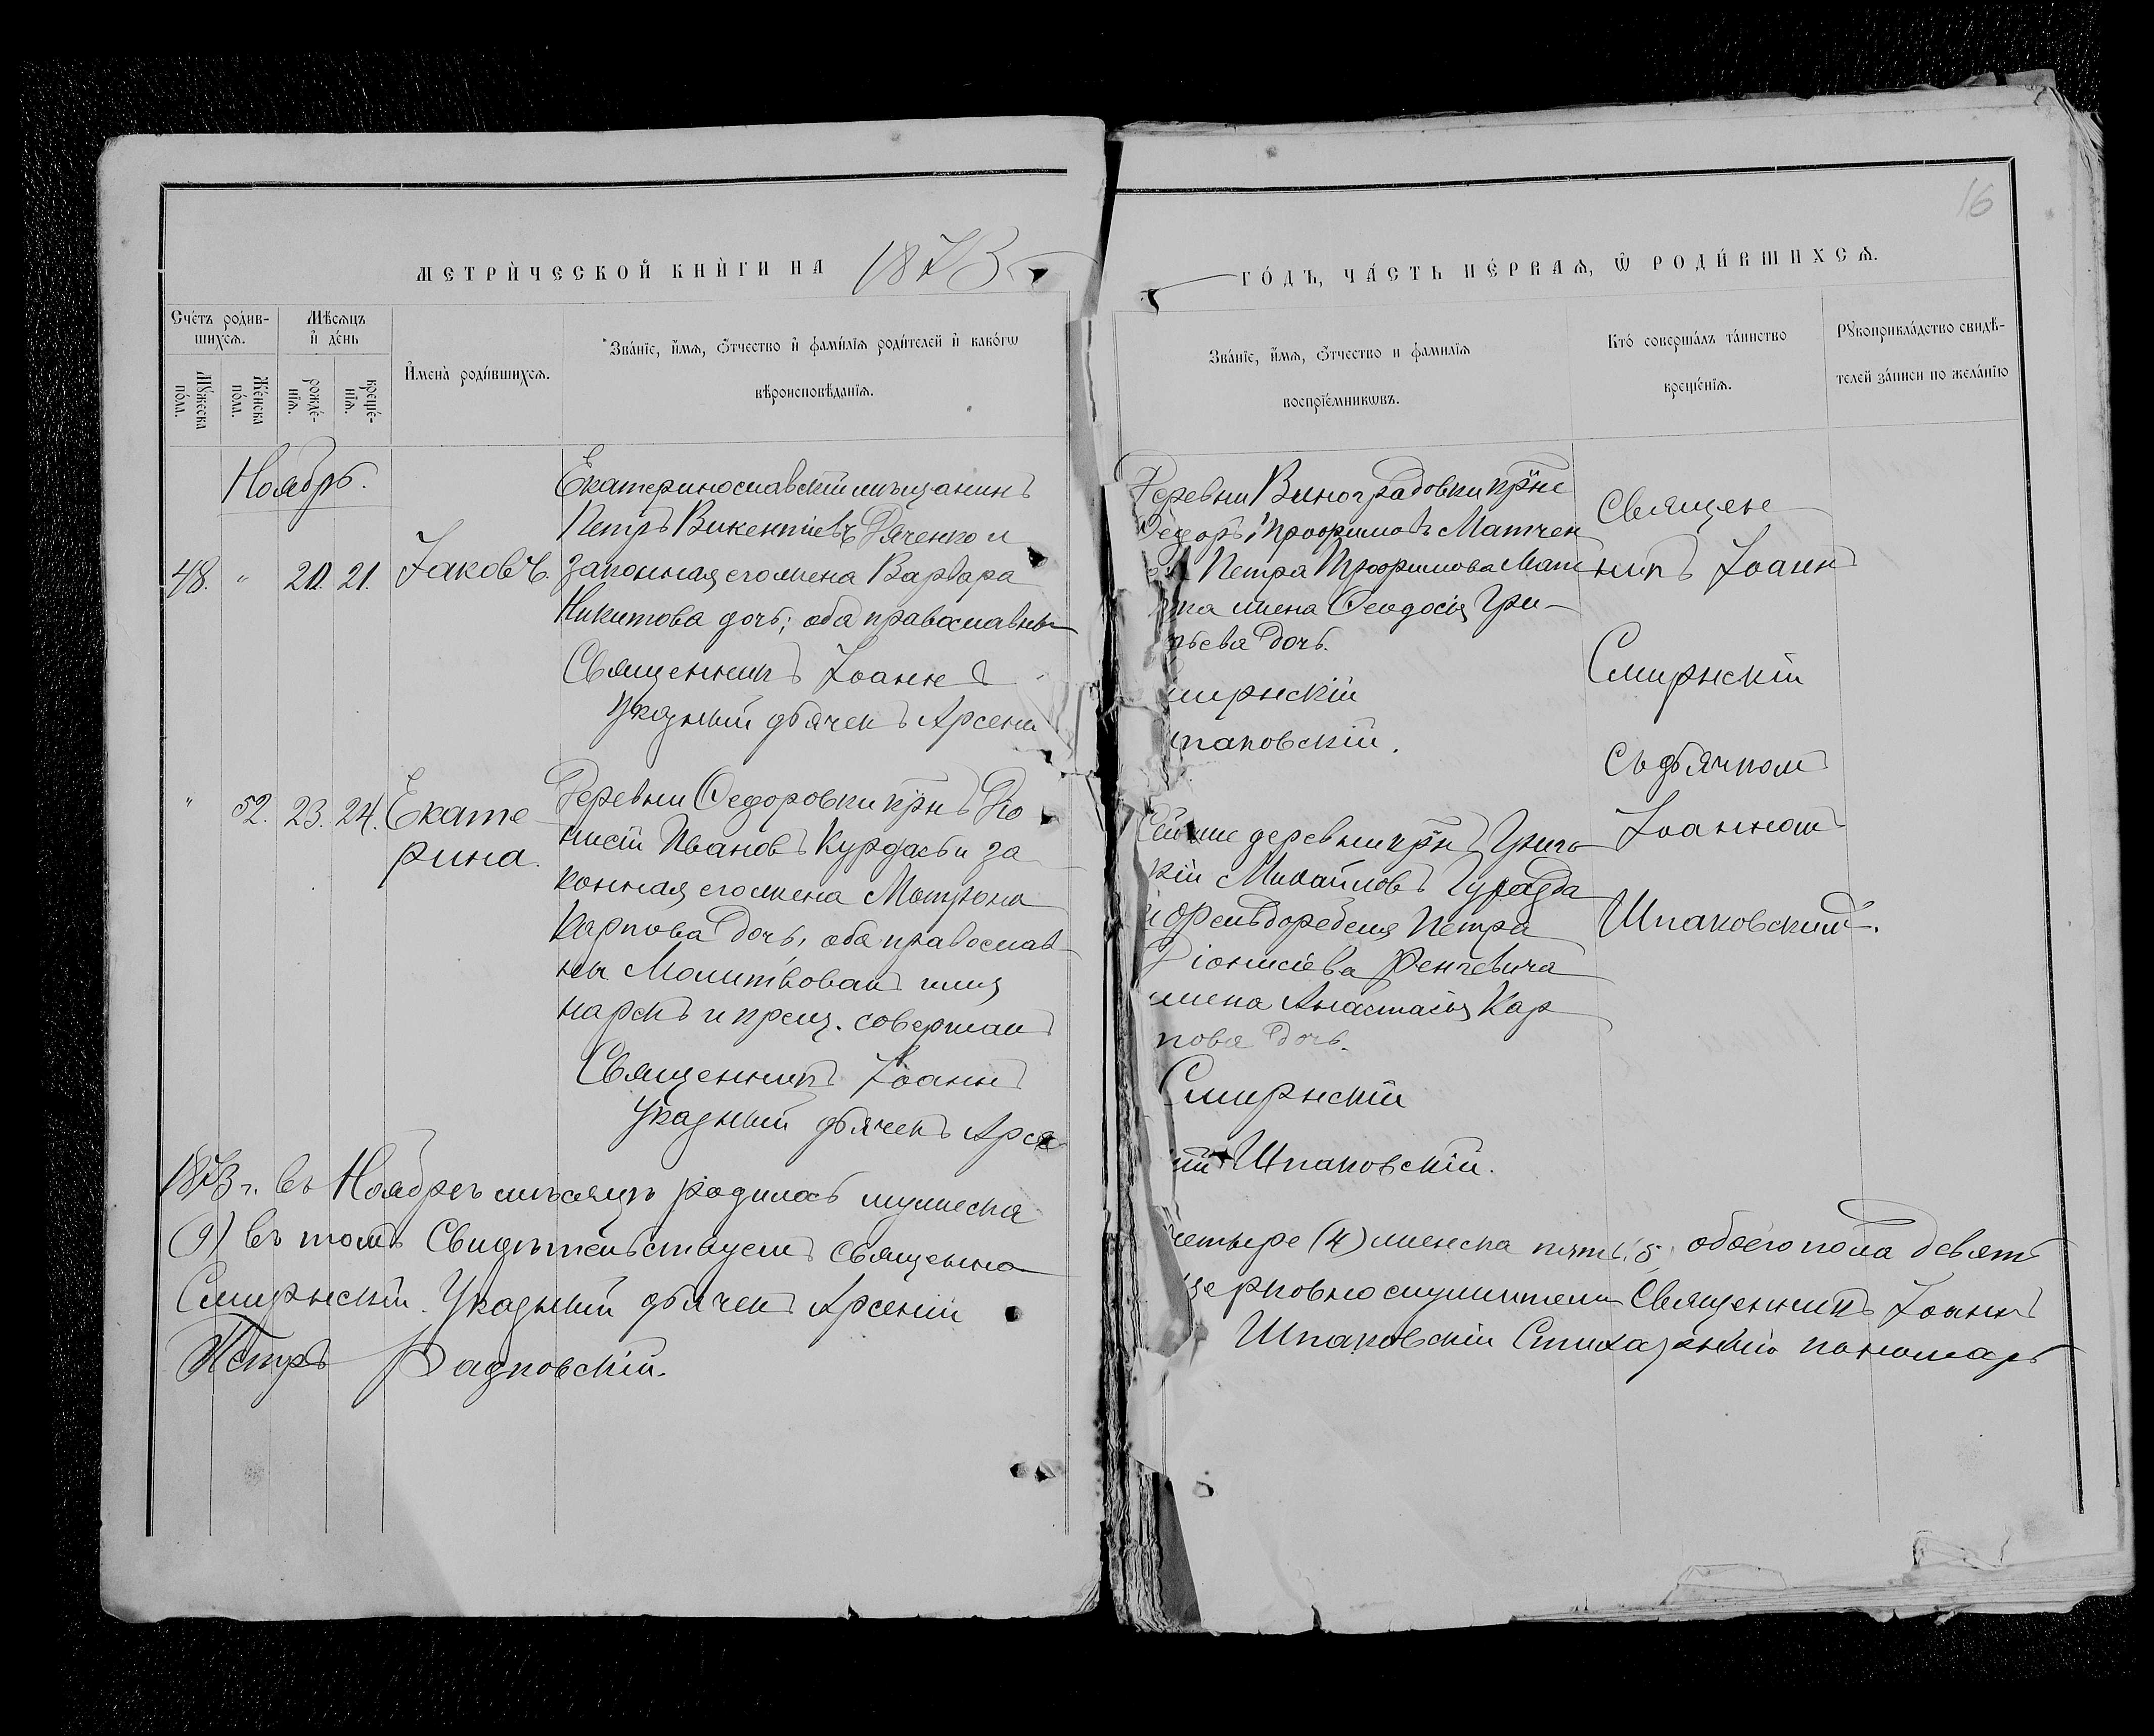 16
МЕТРИ́ЧЕСКОЙ КНИ́ГИ НА 1873
ГО́ДЪ, ЧА́СТЬ ПЕ́РВАѦ, Ѿ РОДИ́ВШИХСѦ.
Сче́тъ роди́в-
шихсѧ.
Мꙋ́жеска
по́ла.
Же́нска
по́ла.
Мѣ́сѧцъ
и҆ де́нь
рожде́-
нїѧ.
креще́-
нїѧ.
И҆мена̀ роди́вшихсѧ.
Зва́нїе, и҆́мѧ, ѻ҆́тчество и҆ фами́лїѧ роди́телей и҆ како́гѡ
вѣроисповѣ́данїѧ.
Зва́нїе, и҆́мѧ, ѻ҆́тчество и фамилїѧ
воспрїе́мникѡвъ.
Кто́ соверша́лъ та́инство
креще́нїѧ.
Рꙋкоприкла́дство свидѣ́-
телей за́писи по жела́нїю
Ноябрь.
48. " 20. 21. Іаковъ.
Екатеринославскій мѣщанинъ
Петръ Викентіевъ Дяченко и
законная его жена Варвара
Никитова дочь; оба православны
Священникъ Іоаннъ
Указный дьячекъ Арсеній
Деревни Виноградовки крне
Трофимовъ Матчен
Петра Трофимова Мат
жена Ѳеодосія Гри-
рьева дочь.
мирнскій
паковскій.
Священ
никъ Іоаннъ
Смирнскій
съ дьячком
Іоанном
Шпаковским.
" 52. 23. 24. Екате
рина.
Деревни Ѳедоровки крнъ Діо
нисій Ивановъ Курдасъ и за
конная его жена Матрона
Карпова дочь, оба православ
ны. Молитвовал имя
нарекъ и крещ. совершалъ
Священникъ Іоаннъ
Указный дьячекъ Арсе
деревни крнъ Григо
рій Михайловъ
Петра
Діонисіева
жена Анастасія Кар
пова дочь.
Смирнскій
ній Шпаковскій.
1873 г. въ Ноябрѣ мѣсяцѣ родилось мужеска
четыре (4) женска пять (5) обоего пола девять
(9) въ томъ Свидѣтельствуемъ Священно
церковнослужители Священникъ Іоаннъ
Смирнскій. Указный дьячекъ Арсеній
Шпаковскій Стихарный пономарь
Петръ Радковскій.